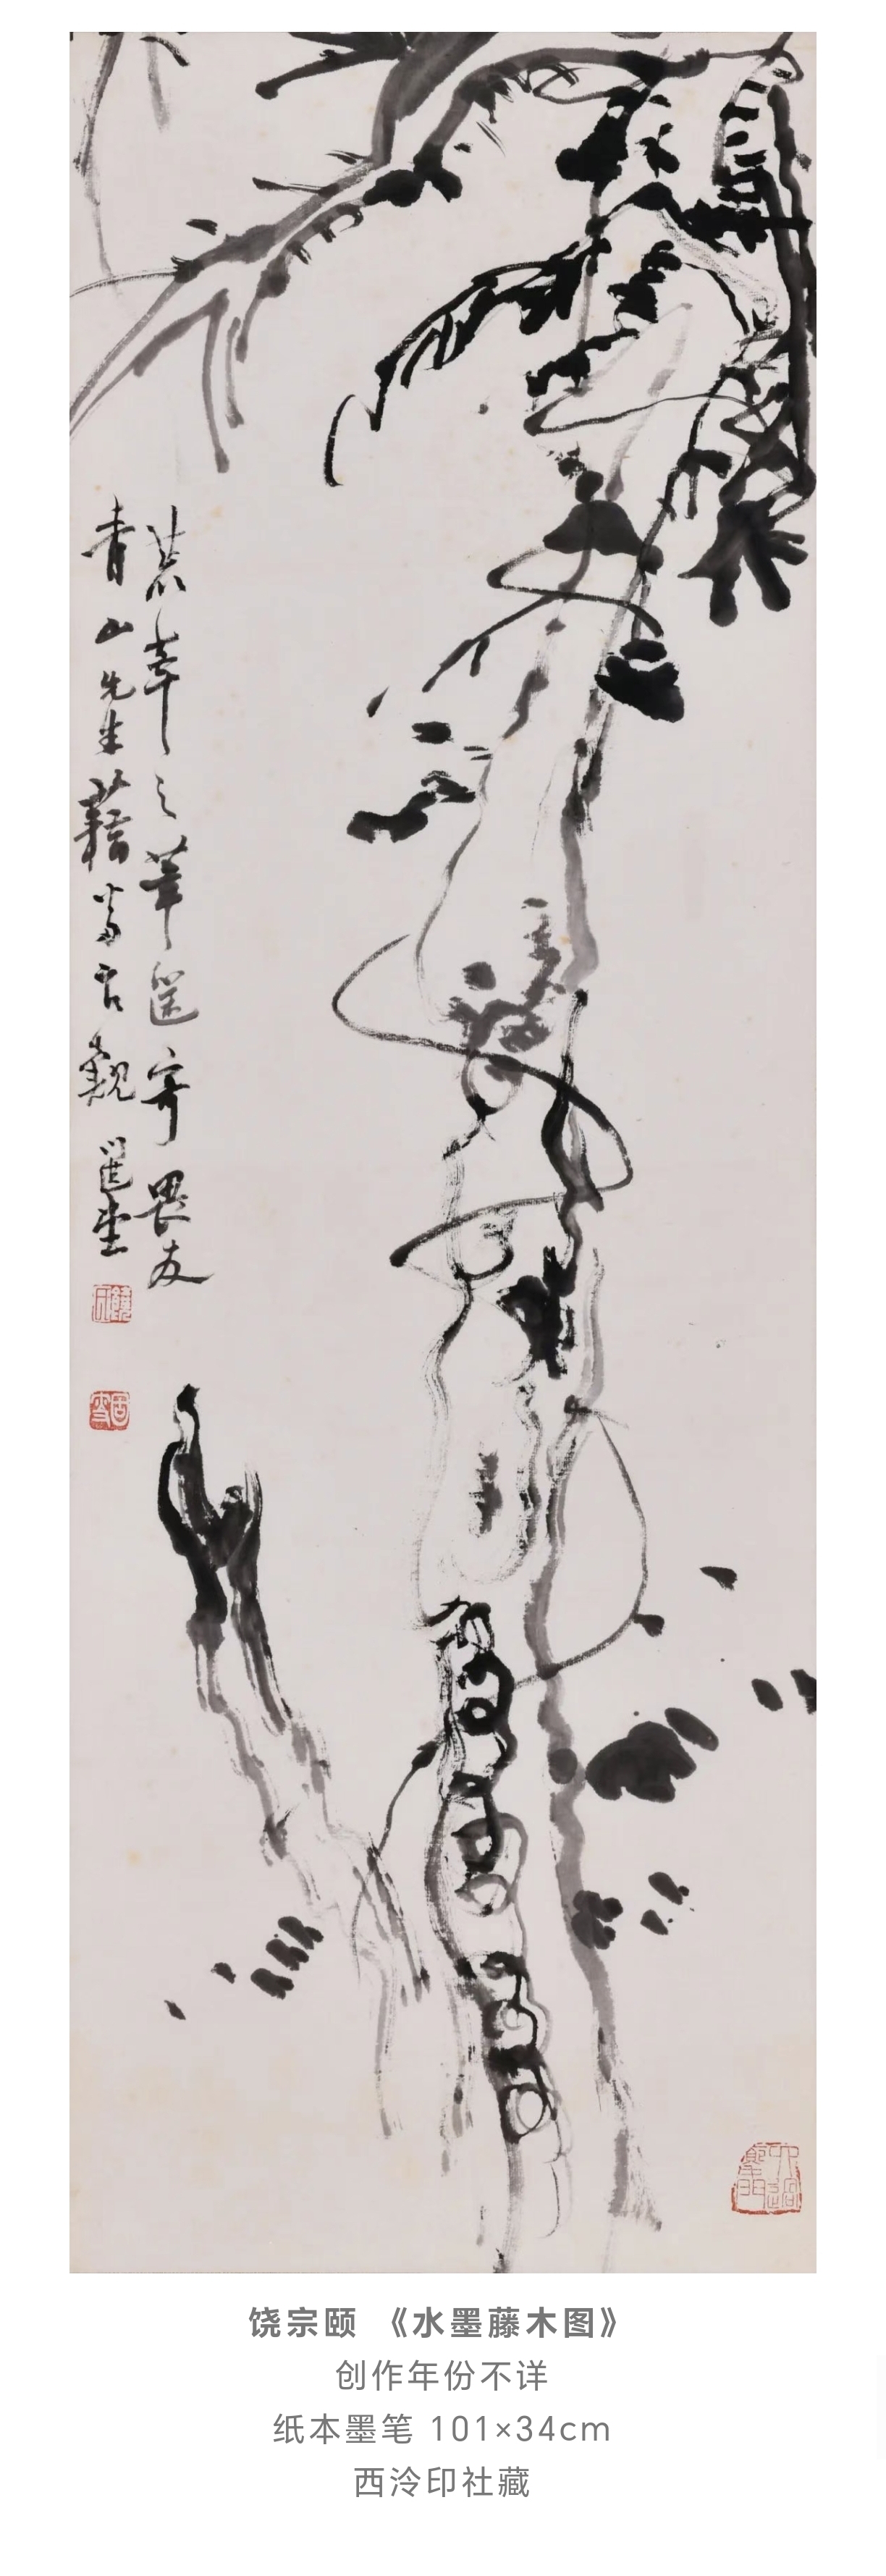 荒率之筆寄畏友
青山先生藉当觀 選堂
饶宗颐 《水墨藤木图》
创作年份不详
纸本墨笔 101×34cm
西泠印社藏